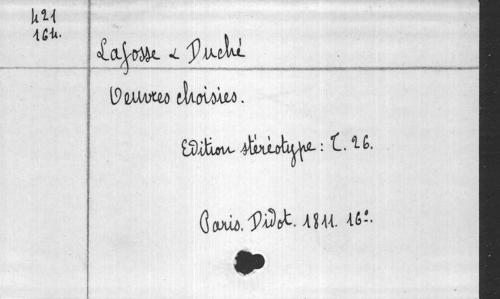 421
164.
Lafosse & Duché
Oeuvres choisies.
Edition stéréotype: T. 26.
Paris. Didot. 1811. 16°.